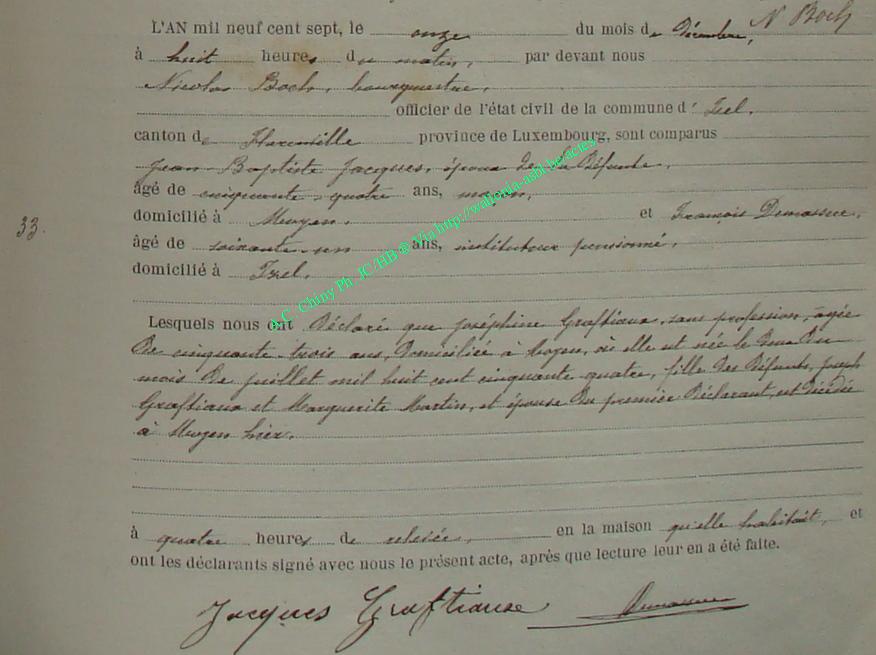 N Boch
L'AN mil neuf cent sept, le onze du mois de Décembre,
à huit heures du matin, par devant nous
Nicolas Boch, bourgmestre,
officier de l'état civil de la commune d' Izel,
canton de Florenville province de Luxembourg, sont comparus
Jean-Baptiste Jacques, époux de la Défunte,
âgé de cinquante-quatre ans, maçon,
domicilié à Moyen, et François Demasure,
33.
âgé de soixante-un ans, instituteur pensionné,
domicilié à Izel.
Lesquels nous ont Déclaré que Joséphine Graftiaux, sans profession, âgée
De cinquante-trois ans, Domiciliée à Moyen, où elle est née le Deux Du
mois De Juillet mil huit cent cinquante quatre, fille des Défunts, Joseph
Graftiaux et Marguerite Martin, et épouse Du premier Déclarant, est Décédée
à Moyen hier,
à quatre heures de relevée, en la maison qu'elle habitait, et
ont les déclarants signé avec nous le présent acte, après que lecture leur en a été faite.
Jacques Graftiause
A.C. Chiny Ph. JC/HB @ Via http://wallonia-asbl.be/actes